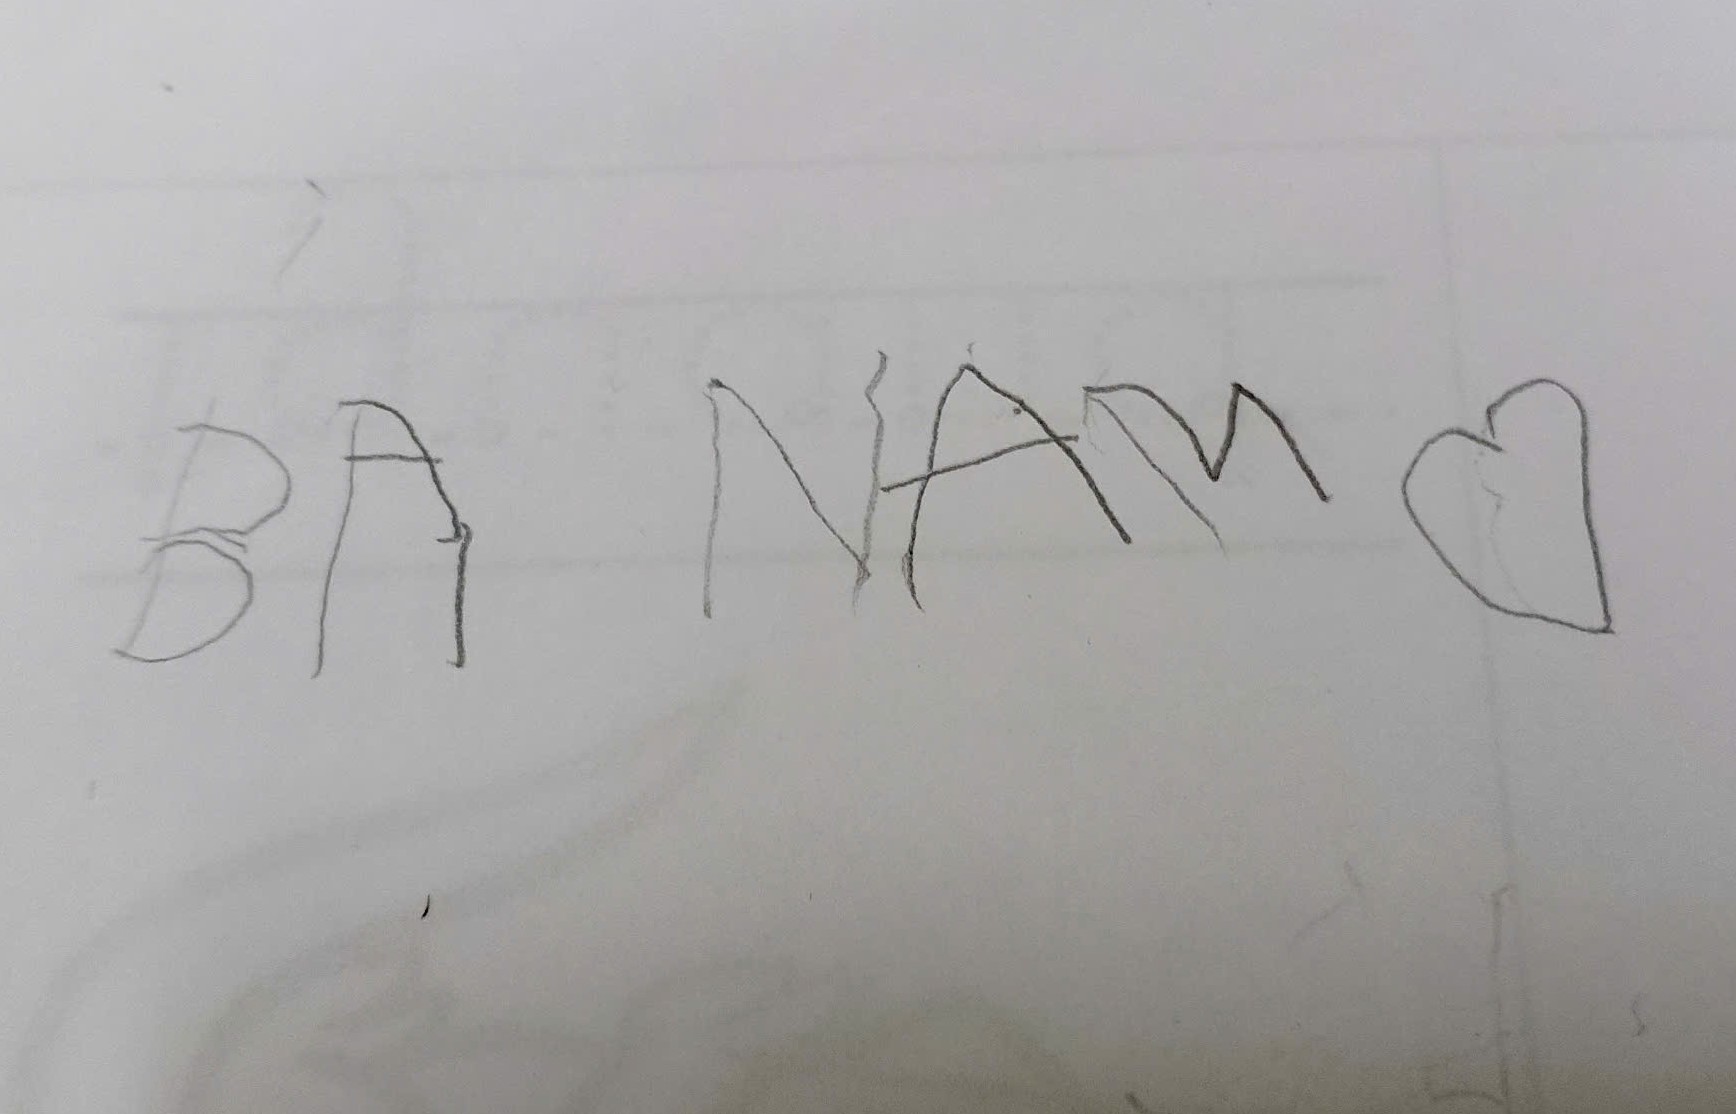 BA NAM